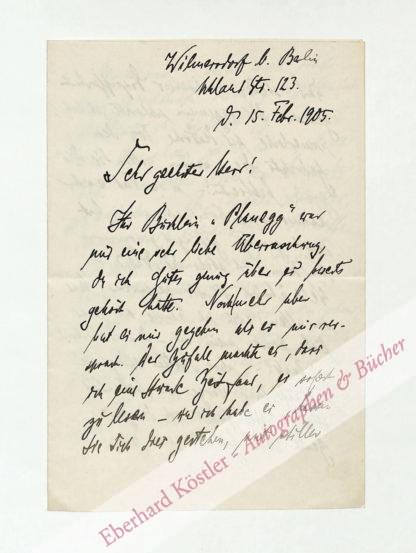 Wilmersdorf b. Berlin
Uhland Str. 123.
d. 15. Febr. 1905.
Sehr geehrter Herr!
Ihr Büchlein „Planegg“ war
mir eine sehr liebe Überraschung,
da ich Gutes genug über es bereits
gehört hatte. Noch mehr aber
hat es mir gegeben als es mir ver-
sprach. Der Zufall machte es, dass
ich eine Stunde Zeit fand, es sofort
zu lesen – und ich habe es
Sie dies gestehen, stiller
Eberhard Köstler - Autographen & Bücher